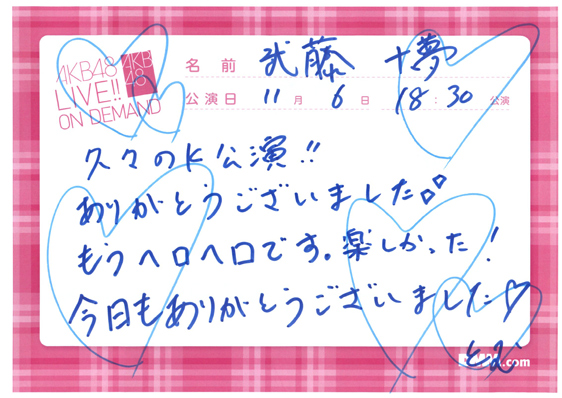 AKB48
LIVE!!
ON DEMAND
AKB
48
名前 武藤 十夢
公演日 11月 6日 18:30 公演
久々のK公演!!
ありがとうございました
もうヘロヘロです。楽しかった!
今日もありがとうございました♡
とむ
.com